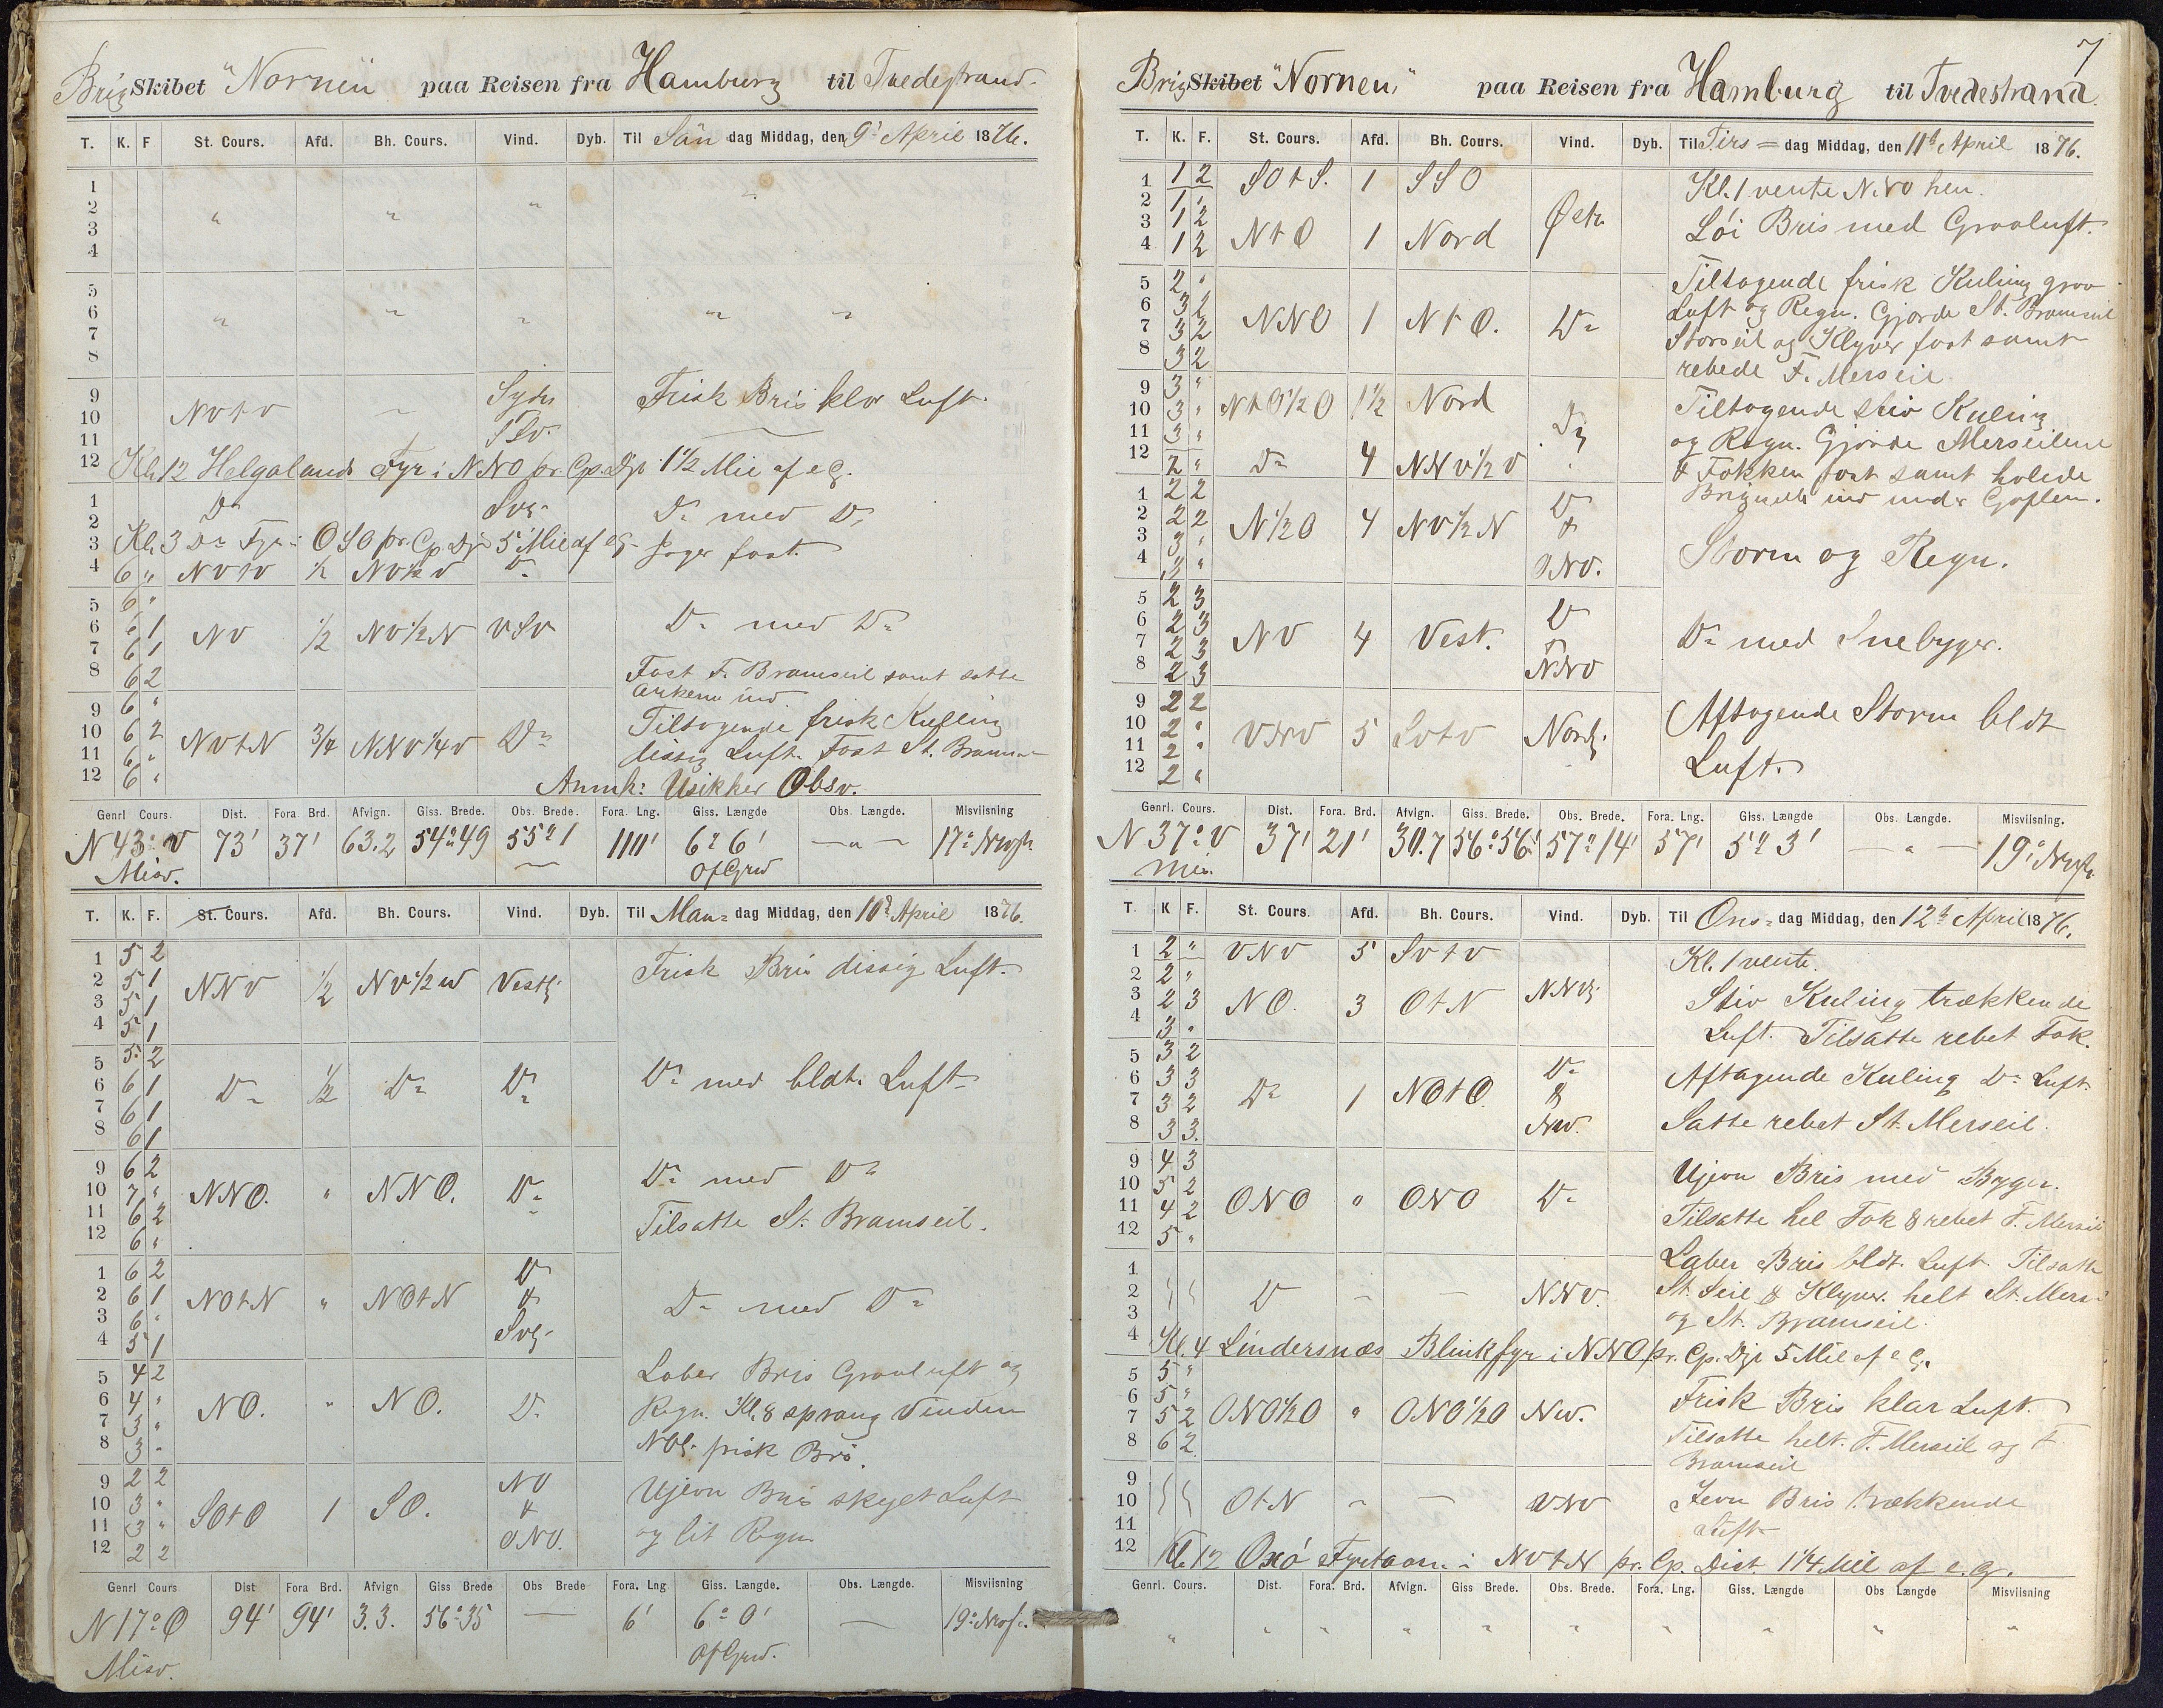 Brig Skibet "Nornen" paa Reisen fra Hamburg til Tvedestrand.
T. K. F St. Cours. Afd. Bh. Cours. Vind. Dyb. Til Søn dag Middag, den 9d April 1876.
1
2 " " " "
3
4
5
6 " " " " "
7
8
9 Sydn Frisk Bris klar Luft.
10 NVtV "
11
12 Kl. 12 Helgolands Fyr i NNO pr. Cp. Djr 1 1/2 Mil af e G.
1 Do Svg. Do med Do
2
3 Kl. 3 Do Fyr i OSO pr. Cp Djr 5 Mil af e G. Jager fast.
4 6 " NVtV 1/2 NV 1/2 V Do
5 6 "
6 6 1 NV 1/2 NV 1/2 N VSV Do med Do
7 6 1
8 6 2 Fast F. Bramseil samt satte
Ankerne ind.
9 6 "
10 6 2 NVtN 3/4 NNV 1/4 V Do Tiltagende frisk Kuling
11 6 " dissig Luft. Fast St. Bramseil
12 6 " Anmk: Usikker Obsv.
Genrl Cours. Dist. Fora Brd. Afvign. Giss. Brede. Obs. Brede. Fora. Lng. Giss. Længde Obs. Længde. Misviisning
N 43° V 73' 37' 63.2 54° 49 55° 1 110' 6° 6' — " — 17° Nvstr
Misv. Of Grw
T. K. F. St. Cours. Afd. Bh. Cours. Vind. Dyb. Til Man= dag Middag, den 10d April 1876.
1 5 2 Frisk Bris dissig Luft.
2 5 1 NNV 1/2 NV 1/2 N Vestlig
3 5 1
4 5 1
5 5 2
6 6 1 Do 1/2 Do Do Do med bldt. Luft.
7 6 1
8 6 1
9 6 2 Do med Do
10 7 " NNO. " NNO. Do
11 6 2 Tilsatte St. Bramseil.
12 6 "
1 6 2 Do
2 6 1 NOtN " NOtN & Do med Do
3 6 " Svg.
4 5 1
5 4 2 Laber Bris Graaluft og
6 4 " NO. " NO. Do Regn. Kl. 8 sprang Vinden
7 3 "
8 3 " NOl. frisk Bris.
9 2 2 NO Ujevn Bris skyet Luft
10 3 " SOtO 1 SO. &
11 3 " ONO. og lit Regn.
12 2 2
Genrl Cours Dist Fora Brd. Afvign Giss Brede Obs Brede Fora. Lng Giss. Længde. Obs. Længde. Misviisning
N 17° O 94' 94' 3.3. 56° 35 — 6' 6° 0' — 19° Nvstr.
Misv. Of Grw.
7
Brig Skibet "Nornen" paa Reisen fra Hamburg til Tvedestrand.
T. K. F. St. Cours. Afd. Bh. Cours. Vind. Dyb. Til Tirs= dag Middag, den 11d April 1876.
1 1 2 SOtS. 1 SSO Kl. 1 vente NVO hen.
2 1 "
3 1 2 NtO 1 Nord Østl. Löi Bris med Graaluft.
4 1 2
5 2 " Tiltagende frisk Kuling graa
6 3 2 NNO 1 NtO. Do Luft og Regn. Gjorde St. Bramseil
7 3 2 Storseil og Klyver fast samt
8 3 2 rebede F. Merseil.
9 3 " NtO 1/2 O 1 1/2 Nord Do Tiltagende stiv Kuling
10 3 "
11 3 " og Regn. Gjorde Merseilene
12 2 " Do 4 NNV 1/2 V & Fokken fast samt halede
1 2 2 Do ind under Gaflen.
2 2 2 N 1/2 O 4 NV 1/2 N &
3 3 " ONO. Storm og Regn.
4 3 "
5 2 3 Do
6 2 3 NV 4 Vest. Do med Snebyger.
7 2 3
8 2 3 NNO
9 2 2 Aftagende Storm bldt
10 2 " VNV 5 SVtV Nordl.
11 2 " Luft.
12 2 "
Genrl. Cours. Dist. Fora. Brd. Afvign. Giss. Brede. Obs. Brede. Fora. Lng. Giss. Længde Obs. Længde. Misviisning.
N 37° V 37' 21' 30.7 56° 56' 57° 14' 57' 5° 3' — " — 19° Nvstr.
Mis.
T K F. St. Cours. Afd. Bh. Cours. Vind. Dyb. Til Ons= dag Middag, den 12d April 1876.
1 2 " VNV 5 SVtV Kl. 1 vente.
2 2 "
3 2 3 NO. 3 OtN NNVlig Stiv Kuling trækkende
4 3 " Luft. Tilsatte rebet Fok.
5 3 2 Do
6 3 3 Aftagende Kuling Do Luft
7 3 2 Do 1 NOtO. &
8 3 3. NV. Satte rebet St. Merseil.
9 4 3 Ujevn Bris med Byger.
10 5 2 ONO " ONO Do
11 4 2 Tilsatte hel Fok & rebet F. Merseil
12 5 "
1 Laber Bris bldt. Luft Tilsatte
2 Do — — NNV. St. Seil & Klyver. helt St. Mers.
3 og St. Bramseil.
4 Kl. 4 Lindersnæs Blinkfyr i NNO pr. Cp. Djr 5 Mil af e G.
5 5 "
6 5 " Frisk Bris klar Luft.
7 5 2 ONO 1/2 O " ONO 1/2 O NV.
8 6 2 Tilsatte helt. F. Merseil og F
Bramseil
9
10 OtN " — VNV Jevn Bris trækkende
11 Luft
12 Kl. 12 Oxö Fyrtaarn i NVtN pr. Cp. Dist 1 1/4 Mil af e. G.
Genrl. Cours. Dist. Fora. Brd. Afvign. Giss Brede. Obs. Brede. Fora. Lng. Giss. Længde Obs Længde Misviisning
" " " " " " " " " "